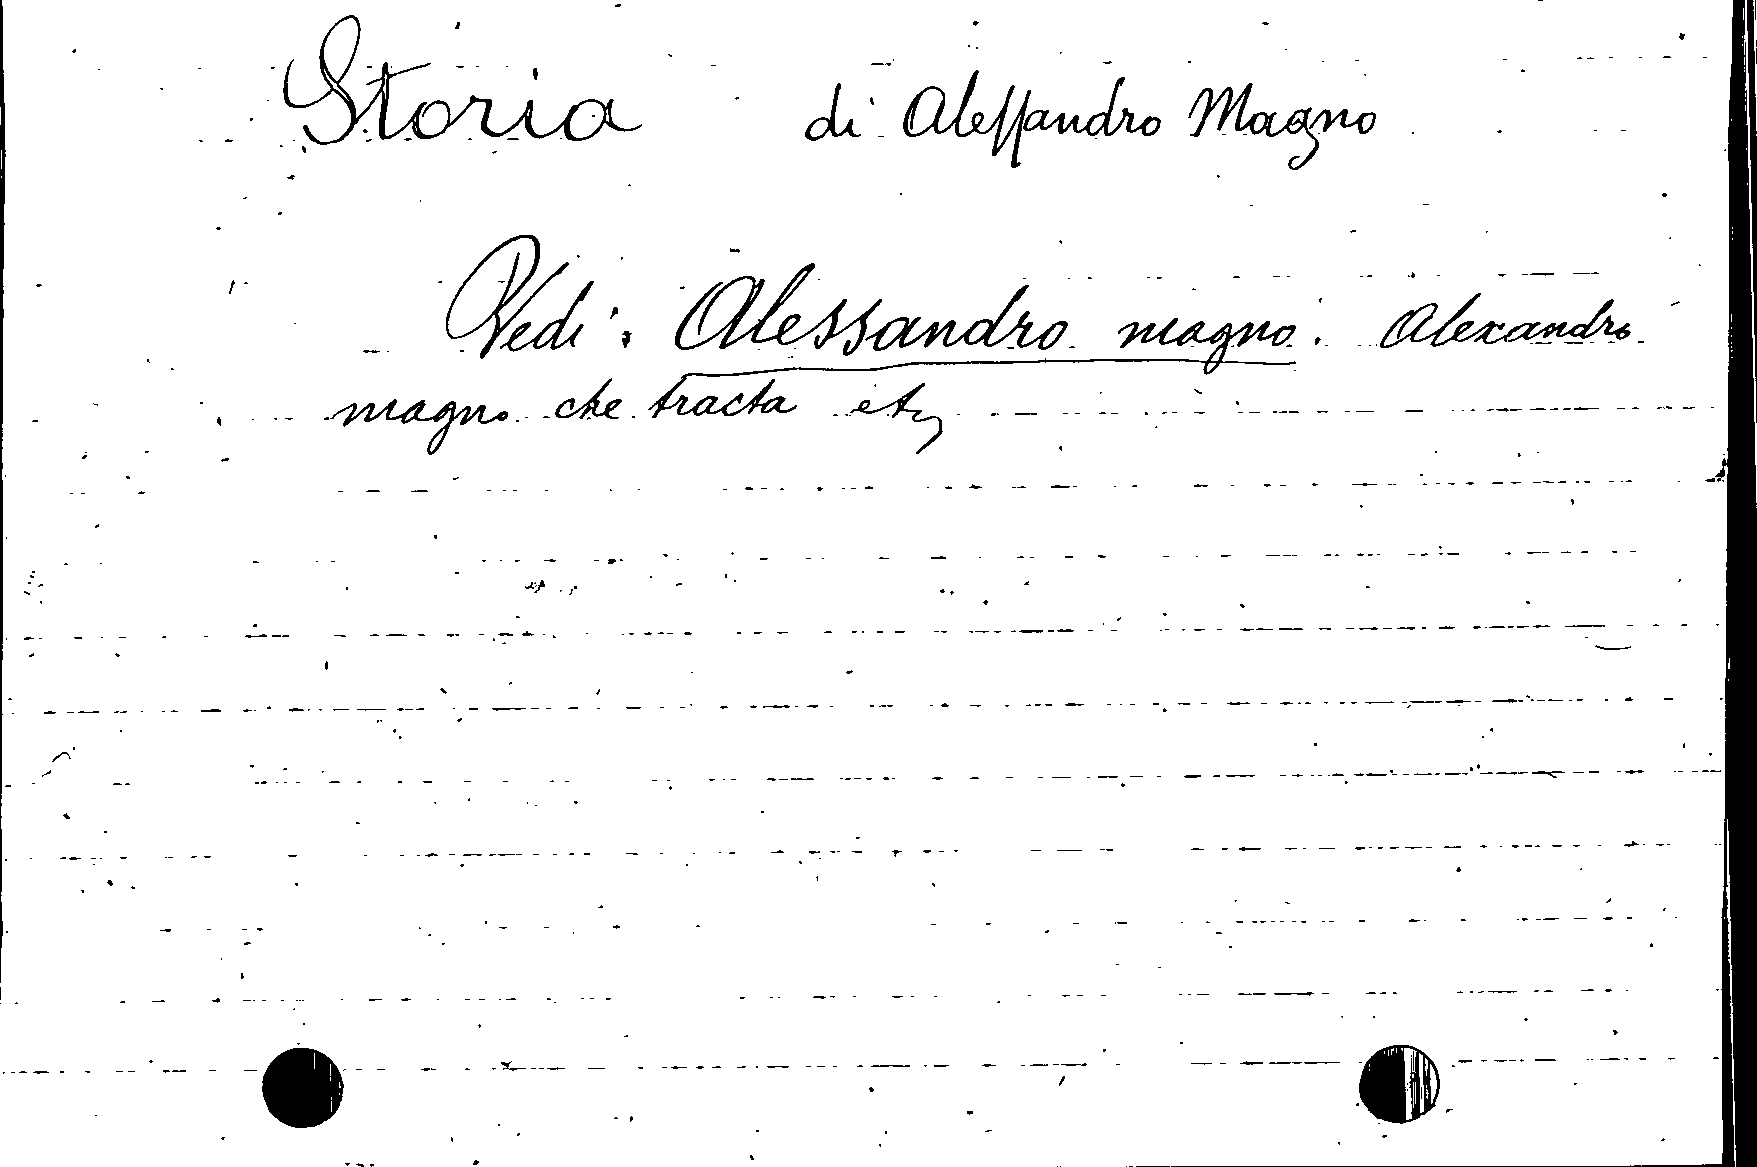 Storia di Alessandro Magno
Vedi: Alessandro magno. Alexandro
magno che tracta etc